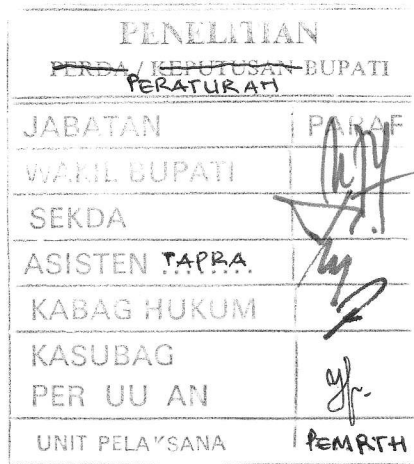 PENELITIAN
PERDA / KEPUTUSAN BUPATI
PERATURAN
JABATAN PARAF
WAKIL BUPATI
SEKDA
ASISTEN TAPRA
KABAG HUKUM
KASUBAG
PER UU AN
UNIT PELAKSANA PEMRTH